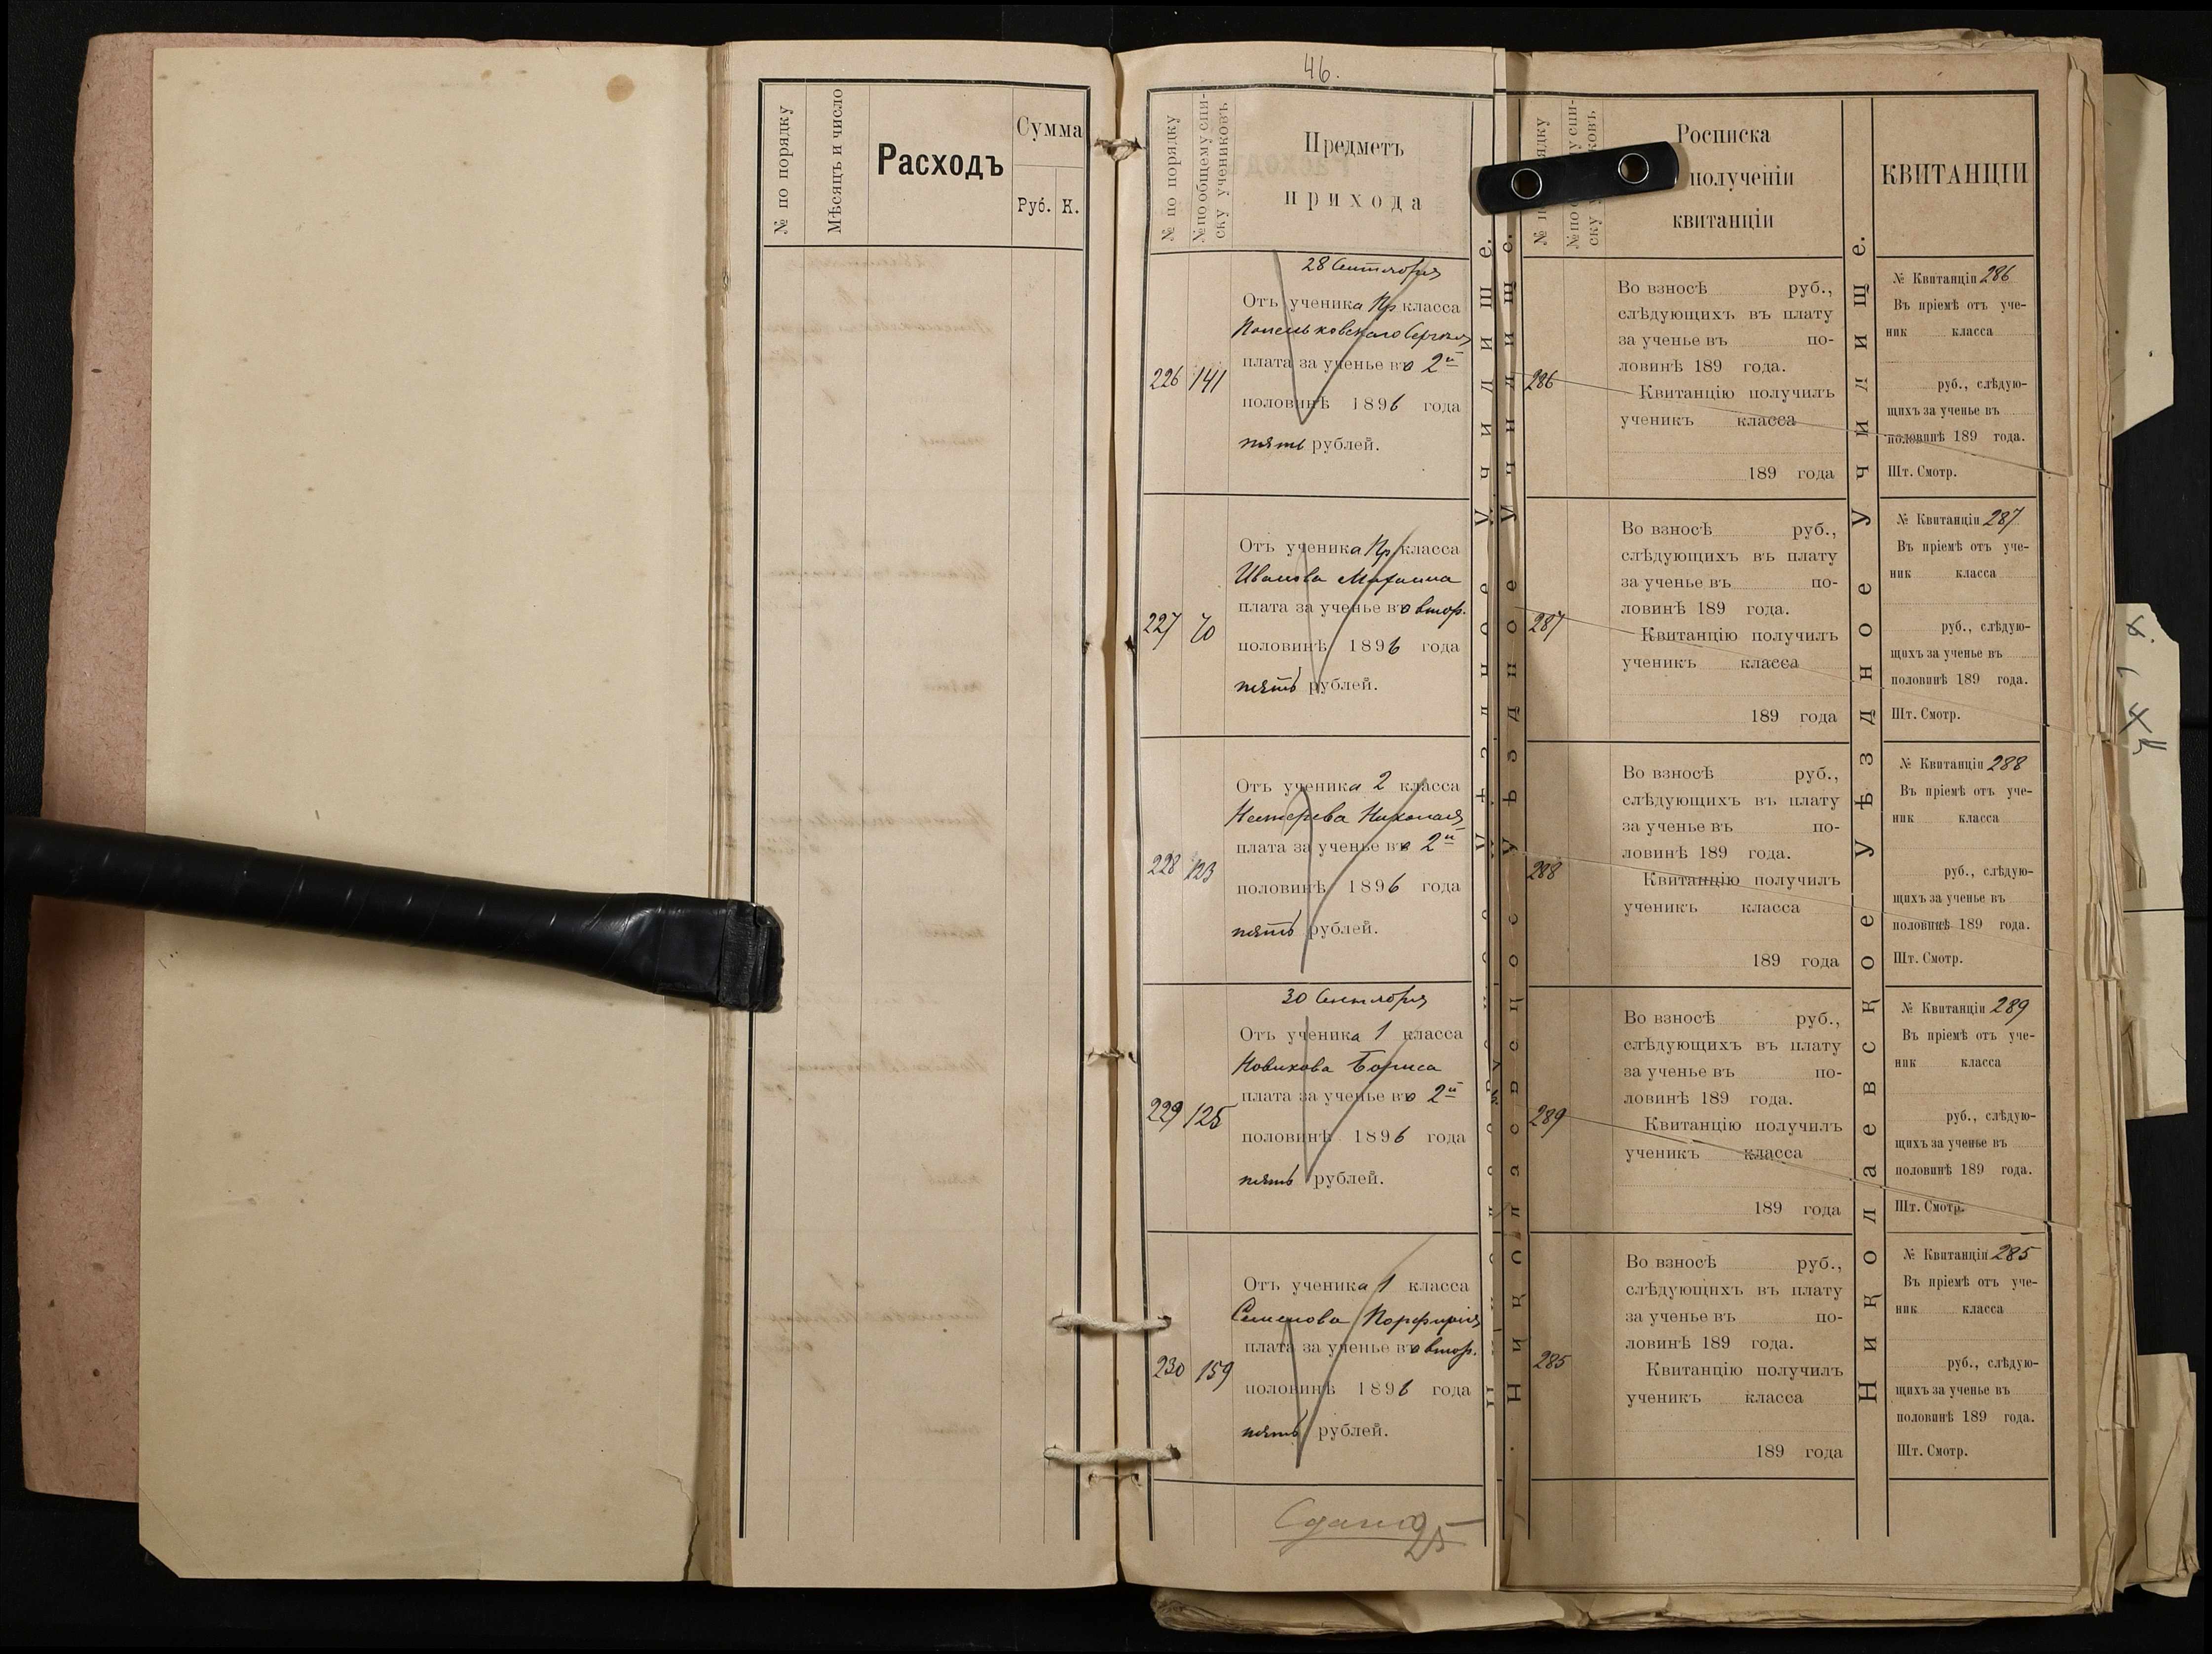 № по порядку
Мѣсяцъ и число
Расходъ
Сумма
Руб. К.
46.
№ по порядку
№ по общему спи-
ску учениковъ
Предметъ
прихода
28 Сентября
Отъ ученика Пр класса
плата за ученье во 2й
226 141
половинѣ 1896 года
пять рублей.
Отъ ученика Пр класса
Иванова Михаила
плата за ученье во втор.
227 70
половинѣ 1896 года
пять рублей.
Отъ ученика 2 класса
Нестерева Николая
плата за ученье во 2й
228 123
половинѣ 1896 года
пять рублей.
30 Сентября
Отъ ученика 1 класса
Новикова Бориса
плата за ученье во 2й
229 125
половинѣ 1896 года
пять рублей.
Отъ ученика 1 класса
Семенова Порфирія
плата за ученье во втор.
230 159
половинѣ 1896 года
пять рублей.
Сдано 25
Николаевское Уѣздное Училище.
Росписка
полученіи
квитанціи
286
Во взносѣ руб.,
слѣдующихъ въ плату
за ученье въ по-
ловинѣ 189 года.
Квитанцію получилъ
ученикъ класса
189 года
287
Во взносѣ руб.,
слѣдующихъ въ плату
за ученье въ по-
ловинѣ 189 года.
Квитанцію получилъ
ученикъ класса
189 года
288
Во взносѣ руб.,
слѣдующихъ въ плату
за ученье въ по-
ловинѣ 189 года.
Квитанцію получилъ
ученикъ класса
189 года
289
Во взносѣ руб.,
слѣдующихъ въ плату
за ученье въ по-
ловинѣ 189 года.
Квитанцію получилъ
ученикъ класса
189 года
285
Во взносѣ руб.,
слѣдующихъ въ плату
за ученье въ по-
ловинѣ 189 года.
Квитанцію получилъ
ученикъ класса
189 года
Николаевское Уѣздное Училище.
КВИТАНЦІИ
№ Квитанціи 286
Въ пріемѣ отъ уче-
ник класса
руб., слѣдую-
щихъ за ученье въ
половинѣ 189 года.
Шт. Смотр.
№ Квитанціи 287
Въ пріемѣ отъ уче-
ник класса
руб., слѣдую-
щихъ за ученье въ
половинѣ 189 года.
Шт. Смотр.
№ Квитанціи 288
Въ пріемѣ отъ уче-
ник класса
руб., слѣдую-
щихъ за ученье въ
половинѣ 189 года.
Шт. Смотр.
№ Квитанціи 289
Въ пріемѣ отъ уче-
ник класса
руб., слѣдую-
щихъ за ученье въ
половинѣ 189 года.
Шт. Смотр.
№ Квитанціи 285
Въ пріемѣ отъ уче-
ник класса
руб., слѣдую-
щихъ за ученье въ
половинѣ 189 года.
Шт. Смотр.